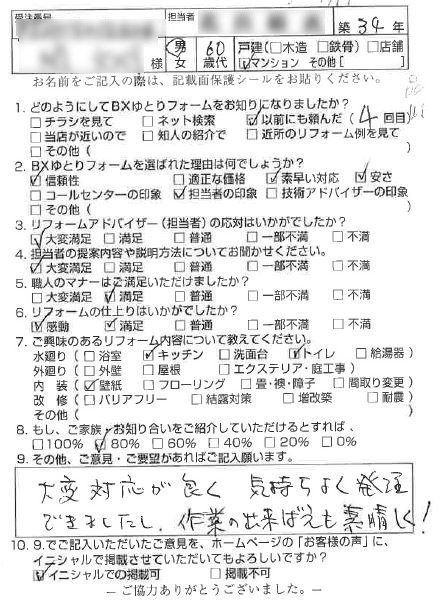 受注番号 担当者 築 34 年
様 男 女 60歳代 戸建(□木造 □鉄骨) □店舗
☑マンション その他[ ]
お名前をご記入の際は、記載面保護シールをお貼りください。
1. どのようにしてBXゆとりフォームをお知りになりましたか?
□チラシを見て □ネット検索 ☑以前にも頼んだ(4回目)
□当店が近いので □知人の紹介で □近所のリフォーム例を見て
□その他(
2. BXゆとりフォームを選ばれた理由は何でしょうか?
☑信頼性 □適正な価格 ☑素早い対応 ☑安さ
□コールセンターの印象 ☑担当者の印象 □技術アドバイザーの印象
□その他(
3. リフォームアドバイザー(担当者)の応対はいかがでしたか?
☑大変満足 □満足 □普通 □一部不満 □不満
4. 担当者の提案内容や説明方法についてお聞かせください。
☑大変満足 □満足 □普通 □一部不満 □不満
5. 職人のマナーはご満足いただけましたか?
□大変満足 ☑満足 □普通 □一部不満 □不満
6. リフォームの仕上りはいかがでしたか?
☑感動 ☑満足 □普通 □一部不満 □不満
7. ご興味のあるリフォーム内容について教えてください。
水廻り(□浴室 ☑キッチン □洗面台 ☑トイレ □給湯器)
外廻り(□外壁 □屋根 □エクステリア・庭工事)
内 装(☑壁紙 □フローリング □畳・襖・障子 □間取り変更)
改 修(□バリアフリー □結露対策 □増改築 □耐震)
その他(
8. もし、ご家族・お知り合いをご紹介していただけるとすれば、
□100% ☑80% □60% □40% □20% □0%
9. その他、ご意見・ご要望があればご記入願います。
大変対応が良く 気持ちよく発注
できましたし、作業の出来ばえも素晴しく!
10. 9.でご記入いただいたご意見を、ホームページの「お客様の声」に、
イニシャルで掲載させていただいてもよろしいですか?
☑イニシャルでの掲載可 □掲載不可
― ご協力ありがとうございました。―